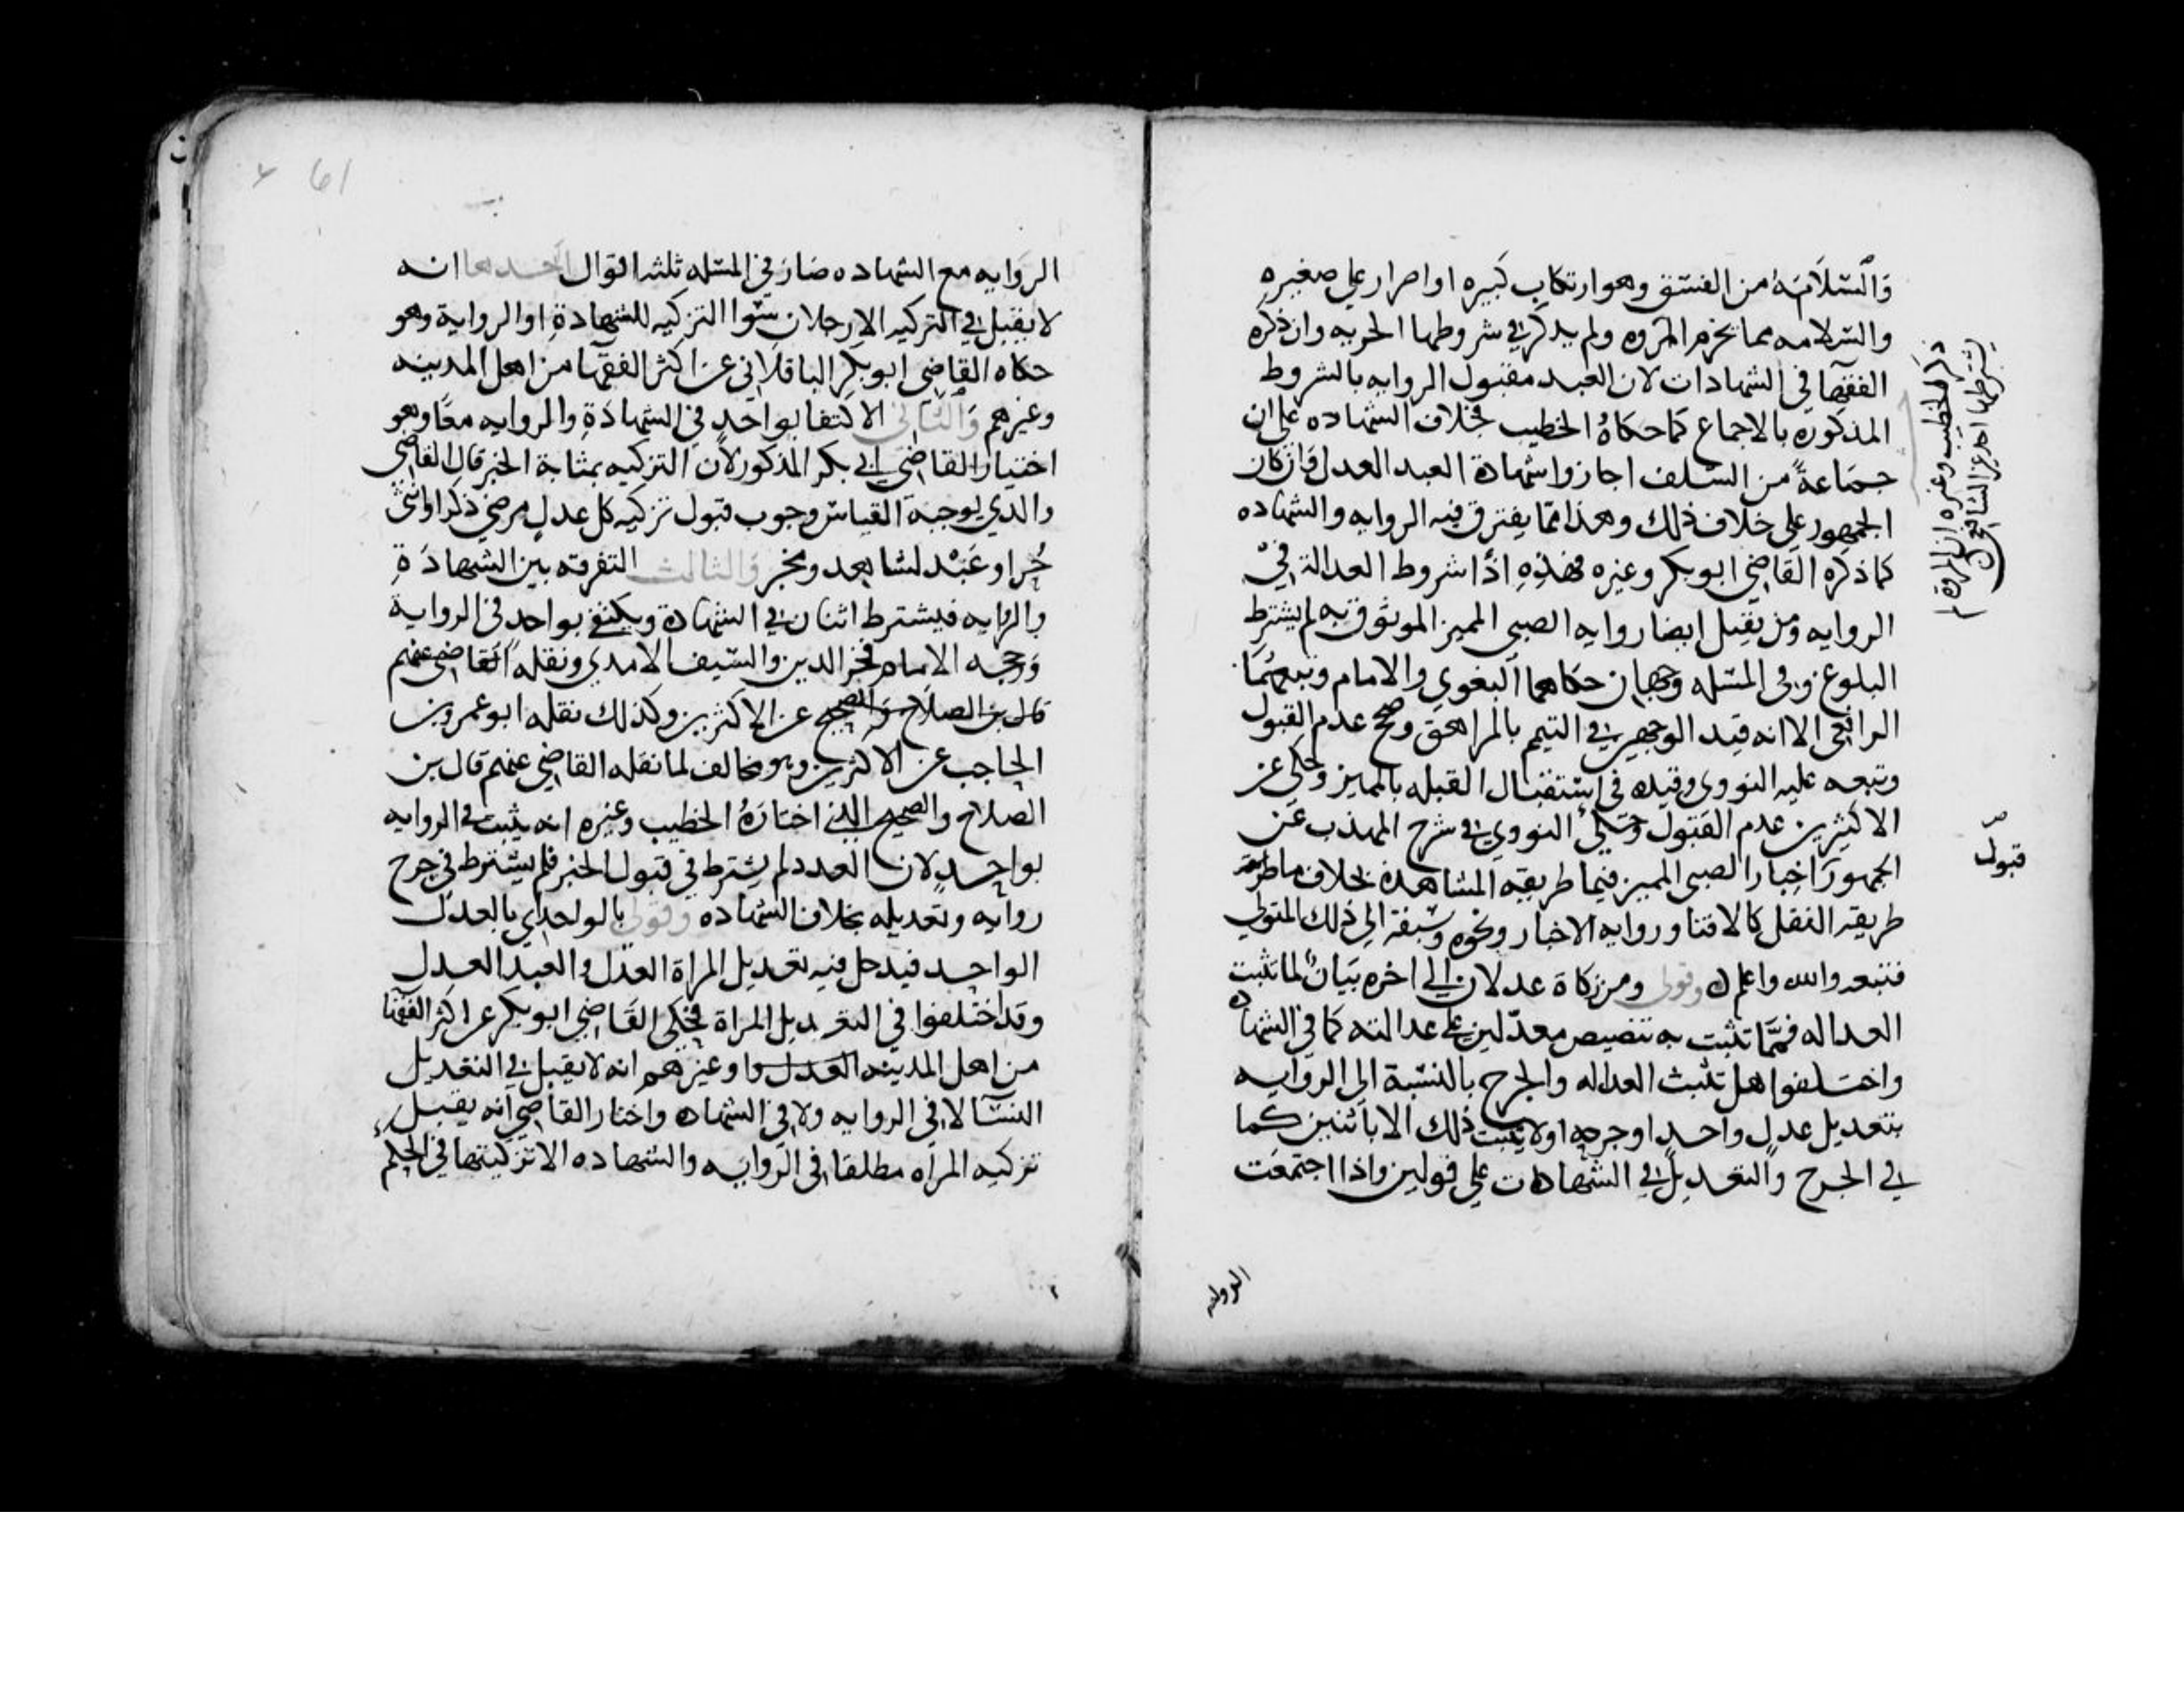 والسلامه من الفسق وهو ارتكاب كبيره او اصرار علي صغيره
والسلامه مما يخرم المروه ولم يذكر في شروطها الحريه وان ذكره
الفقهآ في الشهادات لان العبد مقبول الروايه بالشروط
المذكوره بالاجماع كما حكاه الخطيب بخلاف الشهاده علي ان
جماعة من السلف اجازوا شهادة العبد العدل وان كان
الجمهور علي خلاف ذلك وهذا مما يفترق فيه الروايه والشهاده
كما ذكره القاضي ابو بكر وغيره فهذه اذا شروط العدالة في
الروايه ومن يقبل ايضا روايه الصبي المميز الموثوق به لم يشترط
البلوغ وفي المسله وجهان حكاهما البغوي والامام وتبعهما
الرافعي الا انه قيد الوجهين في التيمم بالمراهق وصحح عدم القبول
وتبعه عليه النووي وقيده في استقبال القبله بالمميز وحكي عن
الاكثرين عدم القبول وحكي النووي في شرح المهذب عن
الجمهور اخبار الصبي المميز فيما طريقه المشاهدة بخلاف ما طريقه
طريقه النقل كالافتا وروايه الاخبار ونحوه وسبقه الي ذلك المتولي
فتبعه والله واعلم وقولي ومن زكاة عدلان الي اخره بيان لما تثبت
العداله فمما تثبت به تنصيص معدلين علي عدالته كما في الشهاده
واختلفوا هل تثبت العداله والجرح بالنسبة الي الروايه
بتعديل عدل واحد او جرحه او لا يثبت ذلك الا باثنين كما
في الجرح والتعديل في الشهادات علي قولين واذا اجتمعت
ذكر الخطيب وغيره ان المروة لم
يشترطها احد غير الشافعي
قبول
الروايه
61
الروايه مع الشهاده صار في المسله ثلثه اقوال احدها انه
لا يقبل في التزكيه الا رجلان سوا التزكيه للشهادة او الرواية وهو
حكاه القاضي ابو بكر الباقلاني عن اكثر الفقهآ من اهل المدينه
وغيرهم والثاني الاكتفا بواحد في الشهادة والروايه معا وهو
اختيار القاضي ابي بكر المذكور لان التزكيه بمثابة الخبر قال القاضي
والذي يوجبه القياس وجوب قبول تزكيه كل عدل مرضي ذكر او انثى
حر او عبد لشاهد ومخبر والثالث التفرقه بين الشهادة
والروايه فيشترط اثنان في الشهادة ويكتفي بواحد في الرواية
ورجحه الامام فخر الدين والسيف الامدي ونقله القاضي عنهم
قال بن الصلاح والصحيح عن الاكثرين وكذلك نقله ابو عمرو بن
الحاجب عن الاكثرين وهو مخالف لما نقله القاضي عنهم قال بن
الصلاح والصحيح الذي اختارة الخطيب وغيره انه يثبت في الروايه
بواحد لان العدد لم يشترط في قبول الخبر فلم يشترط في جرح
روايه وتعديله بخلاف الشهاده وقولي بالواحد اي بالعدل
الواحد فيدخل فيه تعديل المراة العدل والعبد العدل
وقد اختلفوا في التعديل المراة فحكي القاضي ابو بكر عن اكثر الفقها
من اهل المدينه العدل وا وغيرهم انه لا يقبل في التعديل
النسآ لا في الروايه ولا في الشهاده واختار القاضي انه يقبل
تزكيه المراه مطلقا في الروايه والشهاده الا تزكيتها في الحكم